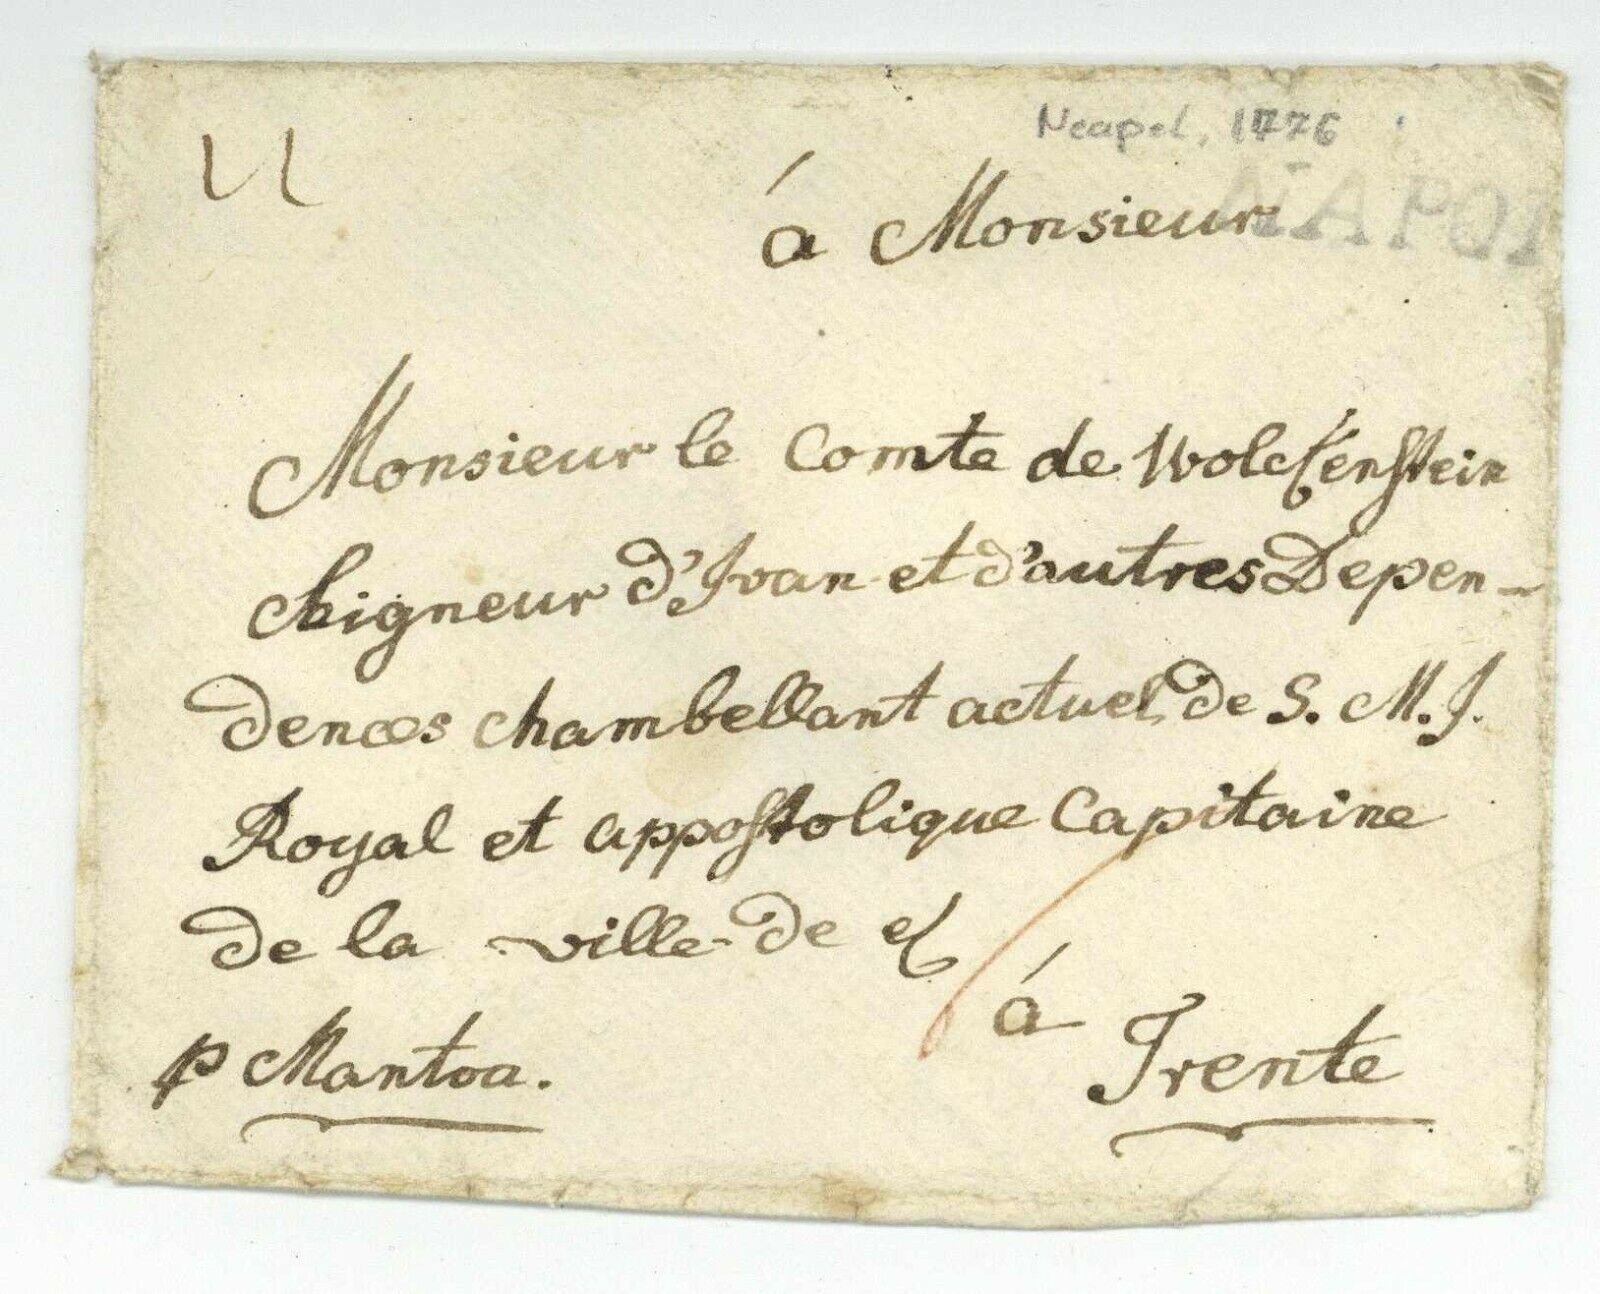 Neapel, 1776
NAPOL
á Monsieur
Monsieur le Comte de Wolckenstein
Seigneur d'Ivan et d'autres Depen-
dences chambellant actuel de S. M. J.
Royal et appostolique Capitaine
de la ville de &
á
Trente
p Mantoa.